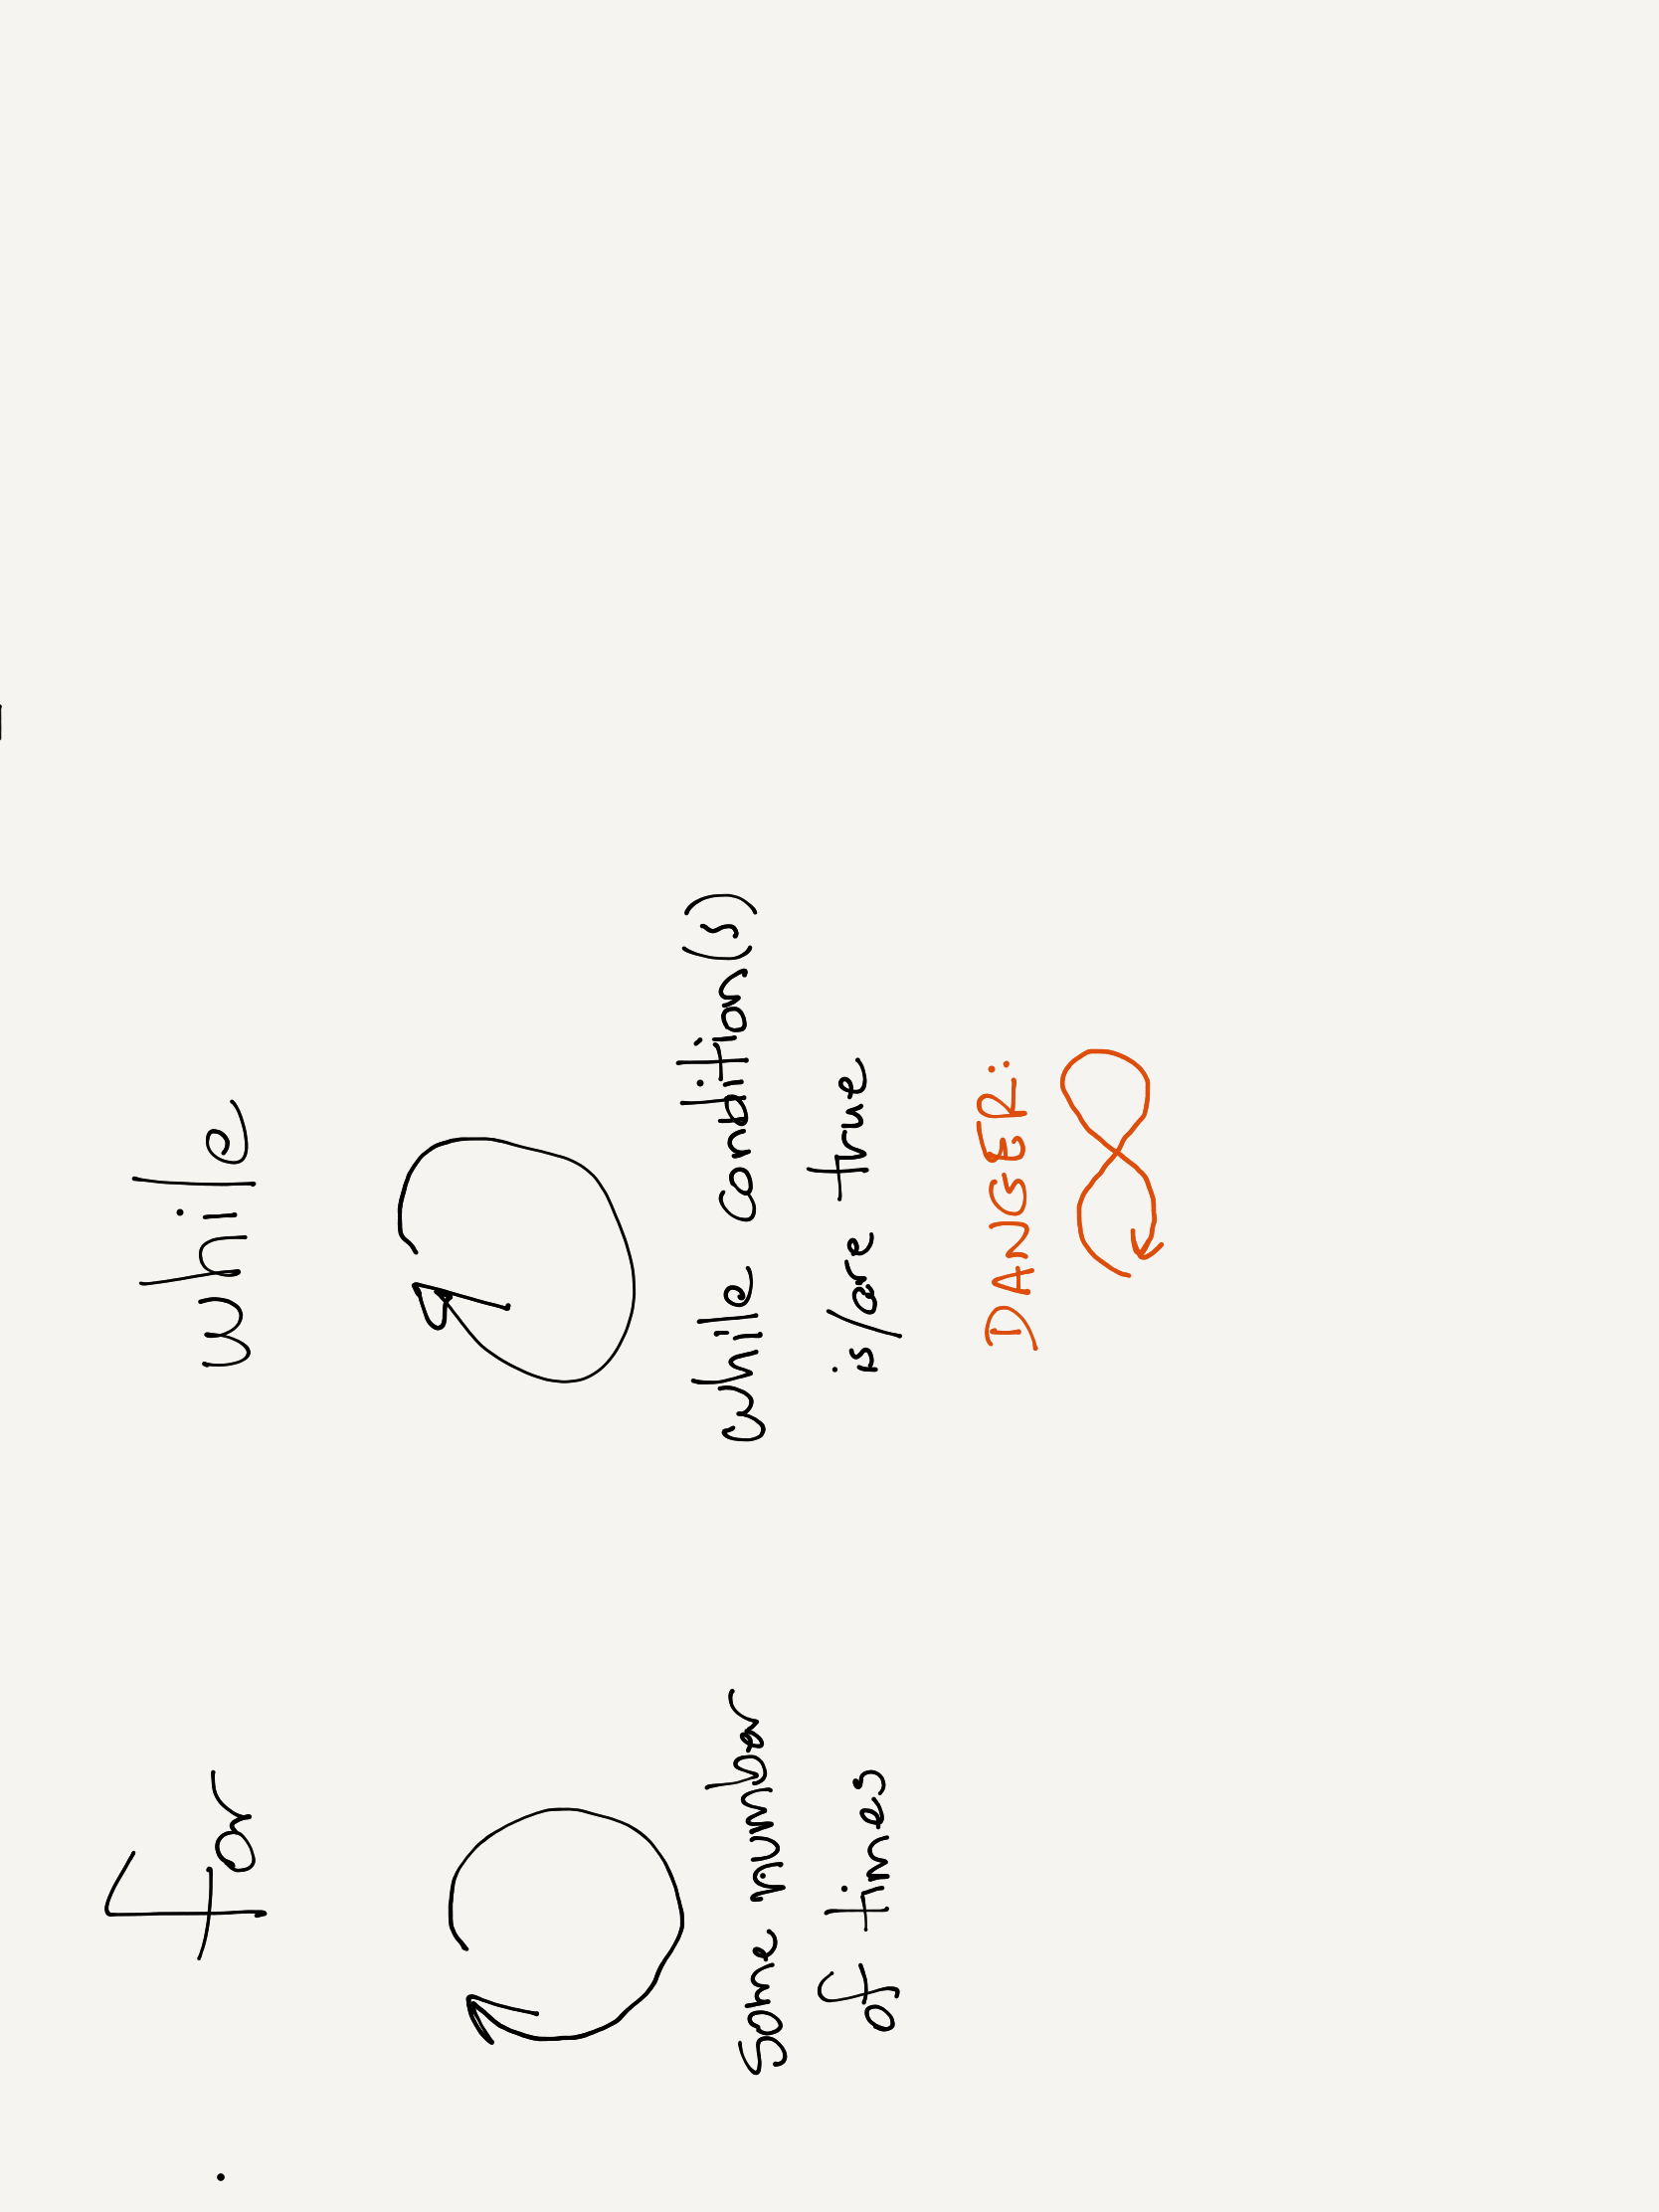 for
some number
of times
while
while condition(s)
is/are true
DANGER: